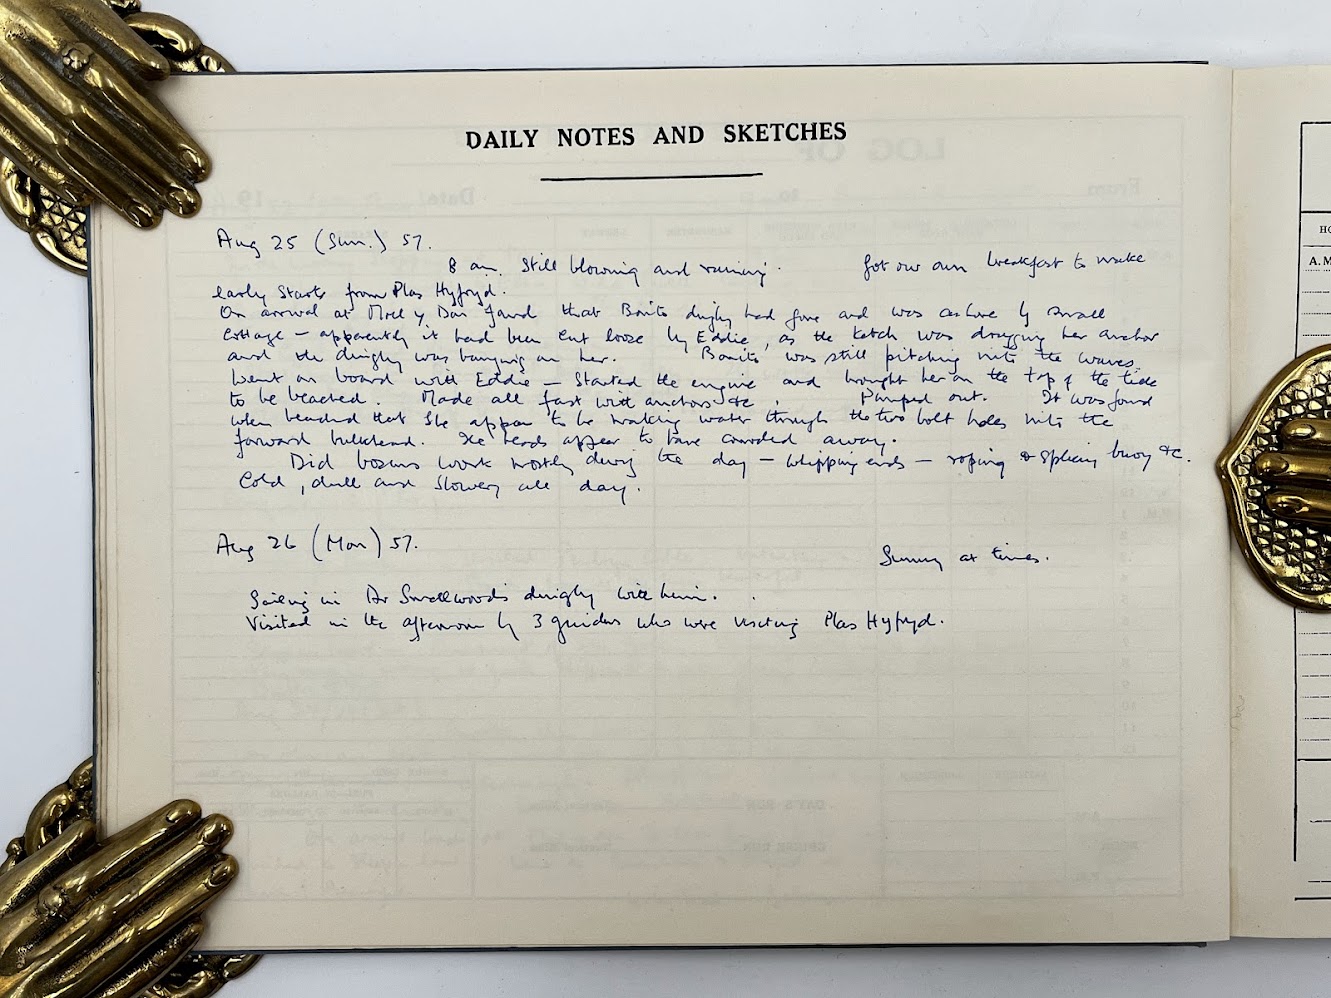 DAILY NOTES AND SKETCHES
Aug 25 (Sun.) 57.
8 am. Still blowing and raining. Got our own breakfast to make
early starts from Plas Hyfryd.
On arrival at Moel y Don found that Bonito dinghy had gone and was ashore by small
cottage – apparently it had been cut loose by Eddie, as the ketch was dragging her anchor
and the dinghy was banging on her. Bonito was still pitching into the waves.
Went on board with Eddie – Started the engine and brought her on the top of the tide
to be beached. Made all fast with anchors &c. Pumped out. It was found
when beached that she appears to be making water through the two bolt holes into the
forward bulkhead. The heads appear to have corroded away.
Did bosuns work mostly during the day – whipping ends – roping & splicing buoy &c.
Cold, dull and showery all day.
Aug 26 (Mon) 57.
Sunny at times.
Sailing in Dr Smallwood's dinghy with him.
Visited in the afternoon by 3 guiders who were visiting Plas Hyfryd.
LOG OF
From
to
Date
19
A.M